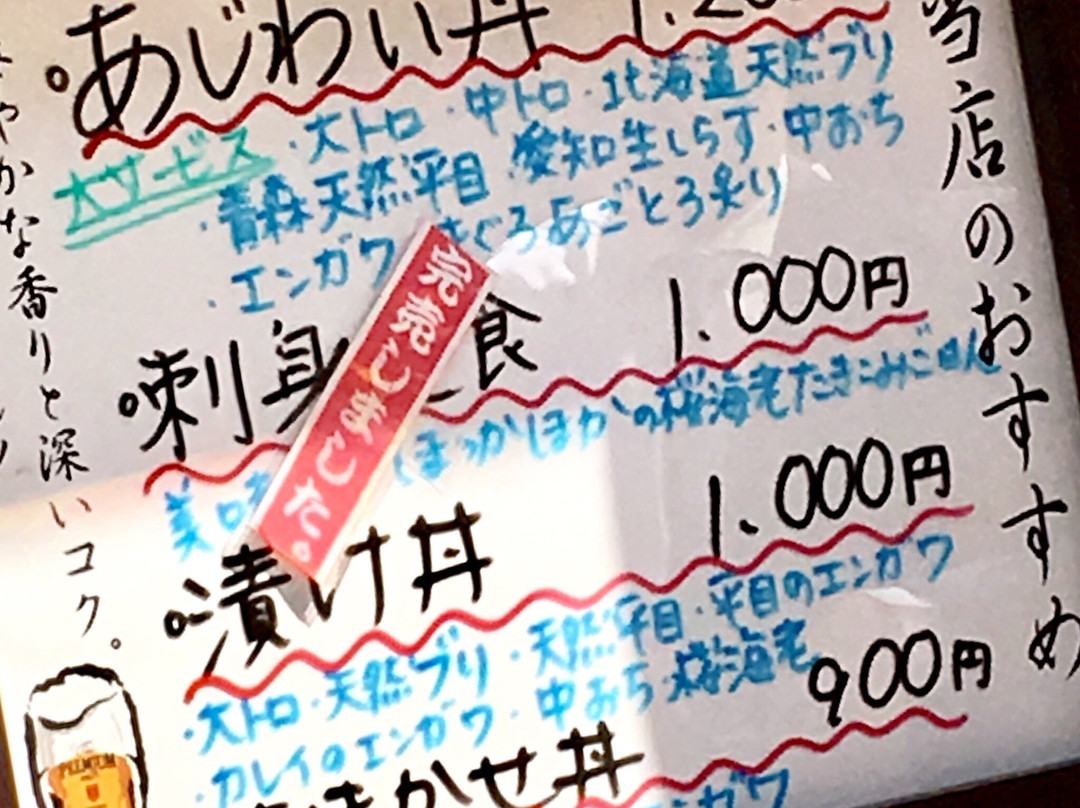 当店のおすすめ
あじわい丼
大サービス
・大トロ・中トロ・北海道天然ブリ
・青森天然平目・愛知生しらす・中おち
・エンガワ まぐろあごとろ炙り
刺身 食 1.000円
美味 ほっかほかの桜海老たきこみごはん
完売しました。
漬け丼 1.000円
・大トロ・天然ブリ・天然平目・平目のエンガワ
・カレイのエンガワ・中おち・桜海老
まかせ丼 900円
ンガワ
やかな香りと深いコク。
PREMIUM